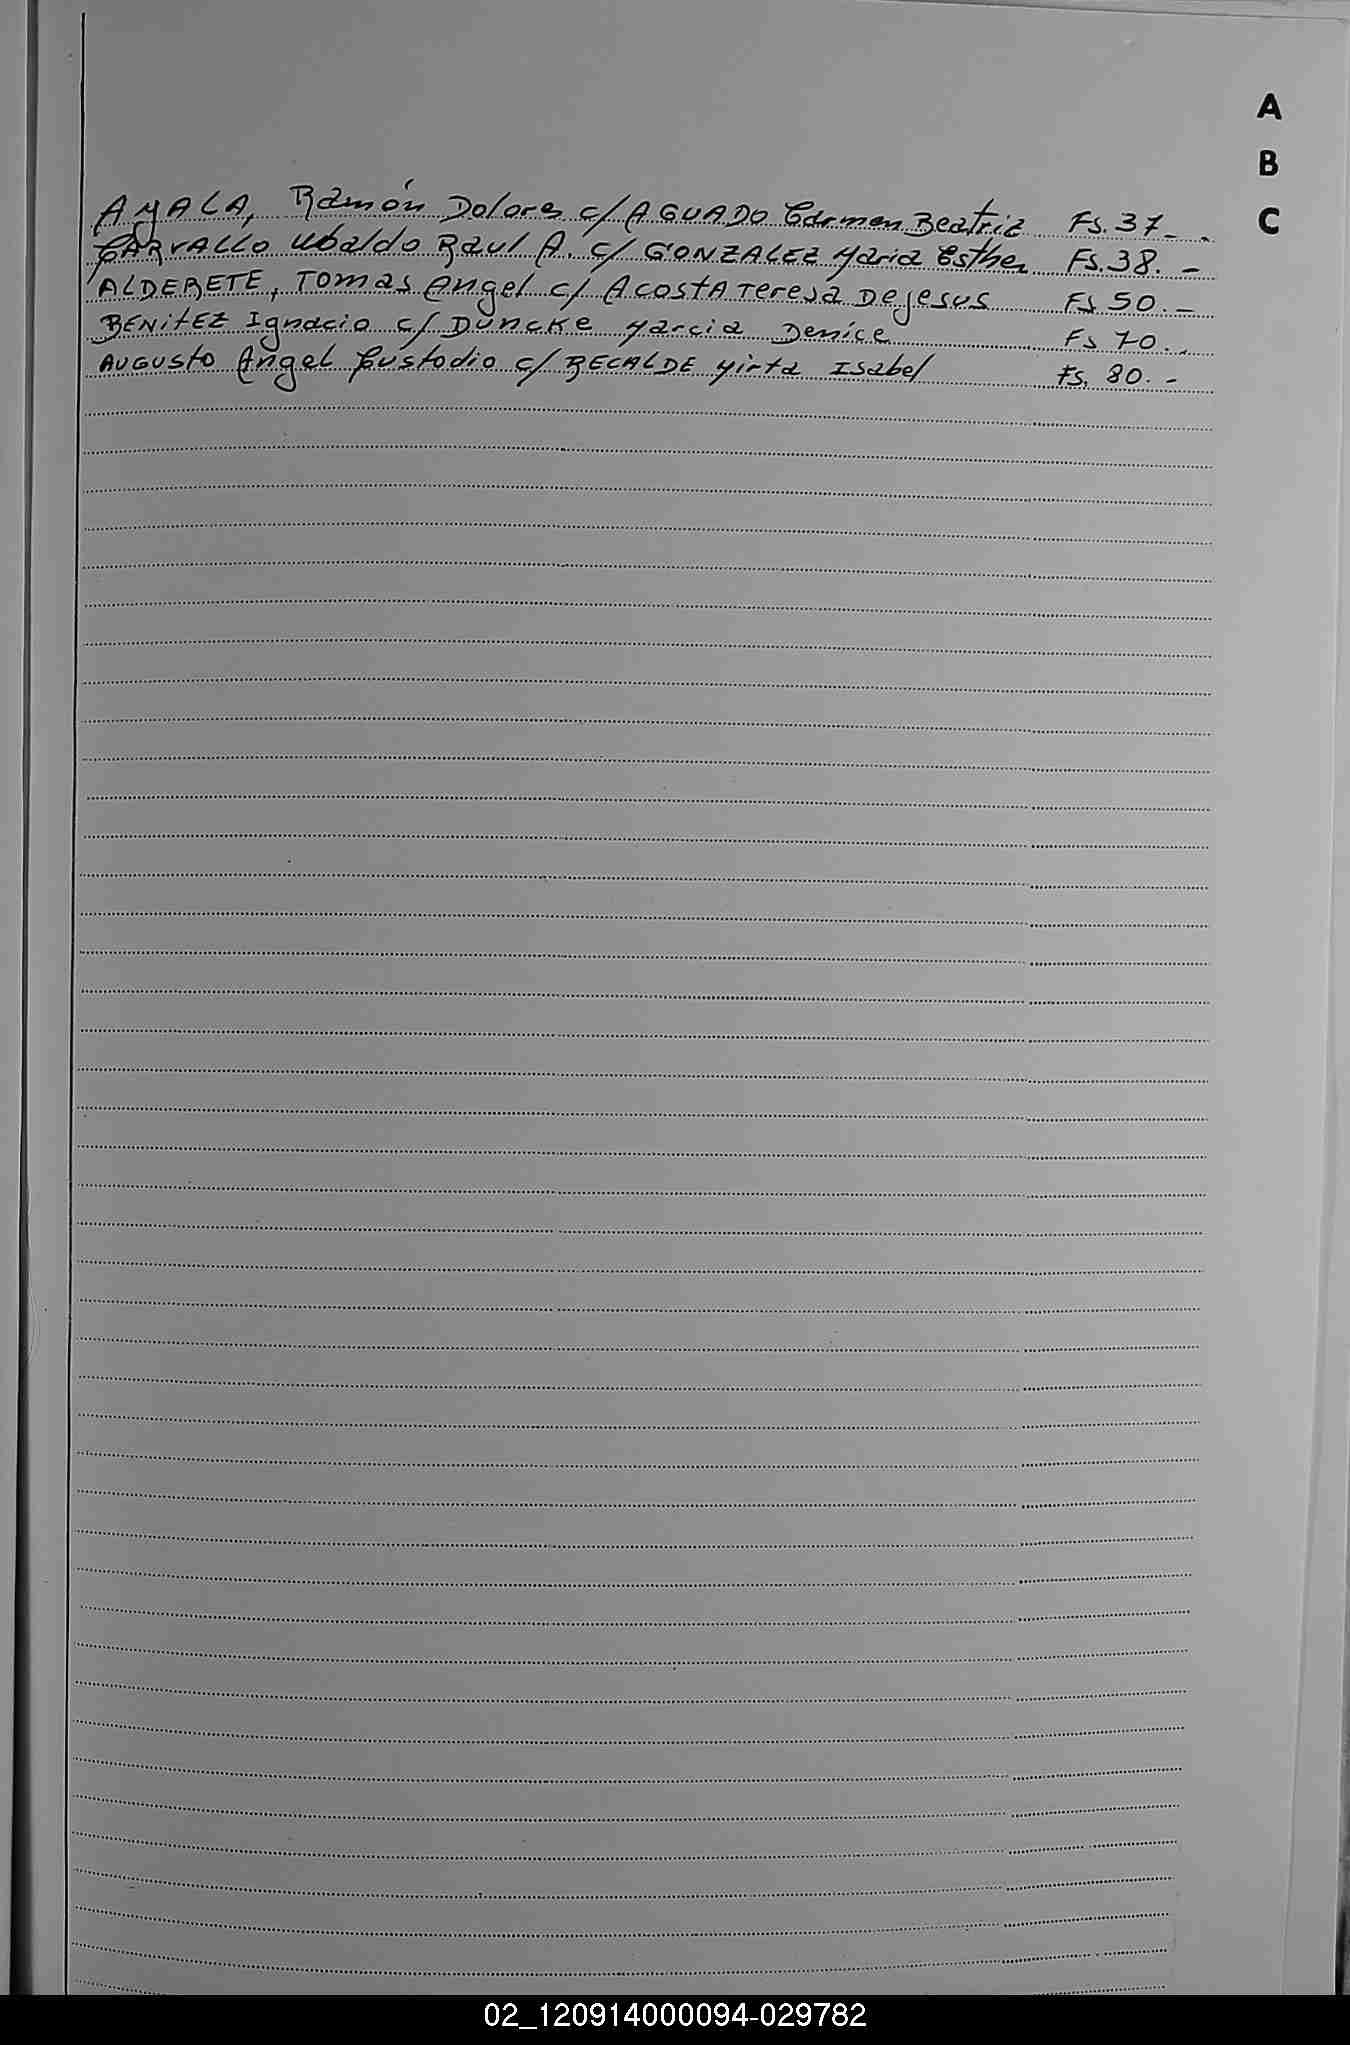 A
B
C
AYALA, Ramón Dolores c/ AGUADO Carmen Beatriz Fs. 37.-
CARVALLO Ubaldo Raul A. c/ GONZALEZ Maria Esther Fs. 38.-
ALDERETE, Tomas Angel c/ Acosta Teresa De Jesus Fs 50.-
BENITEZ Ignacio c/ Duncke Marcia Denice Fs 70.-
AUGUSTO Angel Custodio c/ RECALDE Mirta Isabel Fs. 80.-
02_120914000094-029782